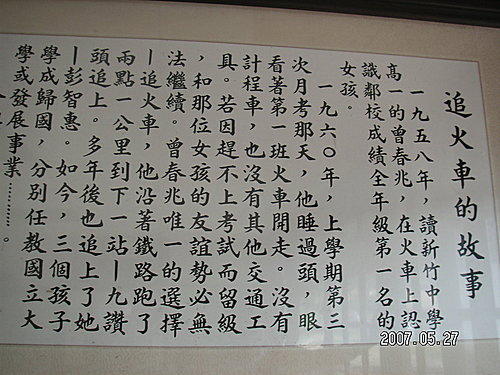 追火車的故事
一九五八年，讀新竹中學
高一的曾春兆，在火車上認
識鄰校成績全年級第一名的
女孩。
一九六〇年，上學期第三
次月考那天，他睡過頭，眼
看著第一班火車開走。沒有
計程車，也沒有其他交通工
具。若因趕不上考試而留級
，和那位女孩的友誼勢必無
法繼續。曾春兆唯一的選擇
｜追火車，他沿著鐵路跑了
兩點一公里到下一站｜九讚
頭追上。多年後也追上了她
｜彭智惠。如今，三個孩子
學成歸國，分別任教國立大
學或發展事業…………。
2007.05.27